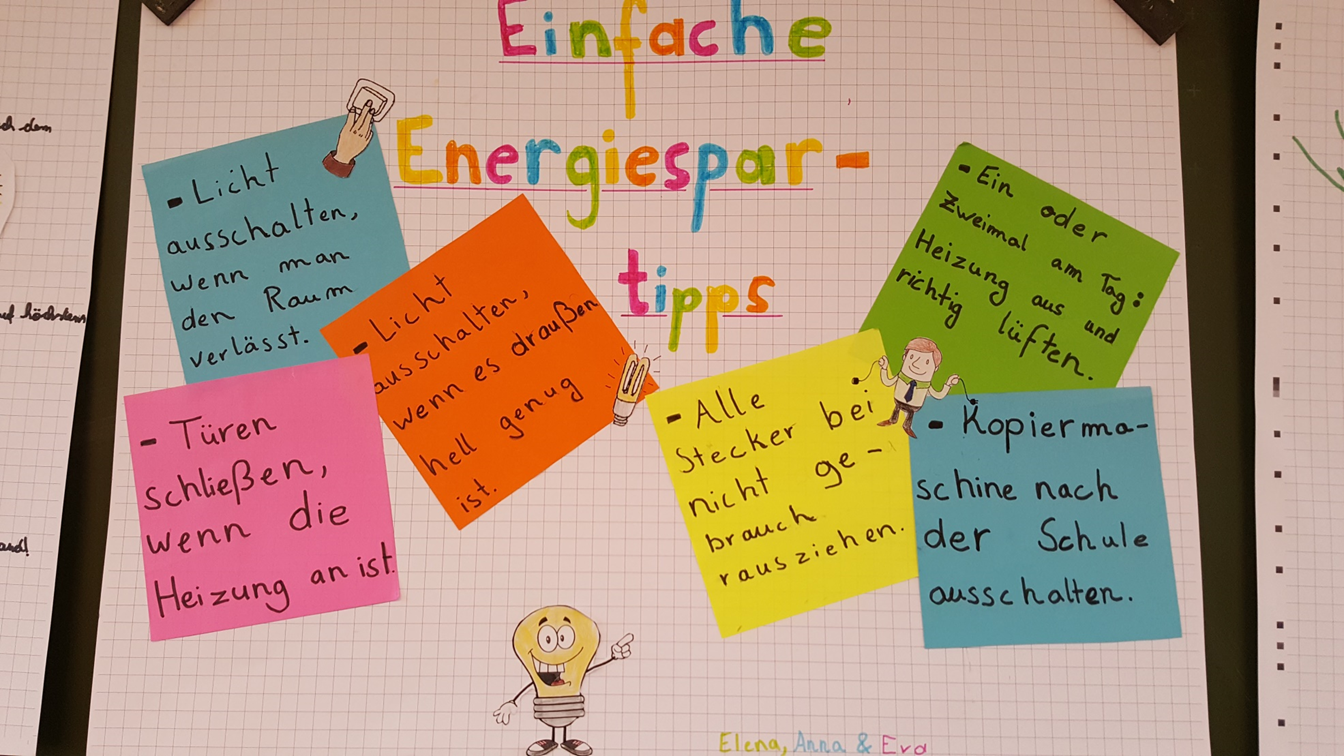 Einfache
Energiespar-
tipps
- Licht
ausschalten,
wenn man
den Raum
verlässt.
- Licht
ausschalten,
wenn es draußen
hell genug
ist.
- Türen
schließen,
wenn die
Heizung an ist.
- Ein oder
zweimal am Tag:
Heizung aus und
richtig lüften.
- Alle
Stecker bei
nicht ge-
brauch
rausziehen.
- Kopierma-
schine nach
der Schule
ausschalten.
Elena, Anna & Eva
dem
höchstens